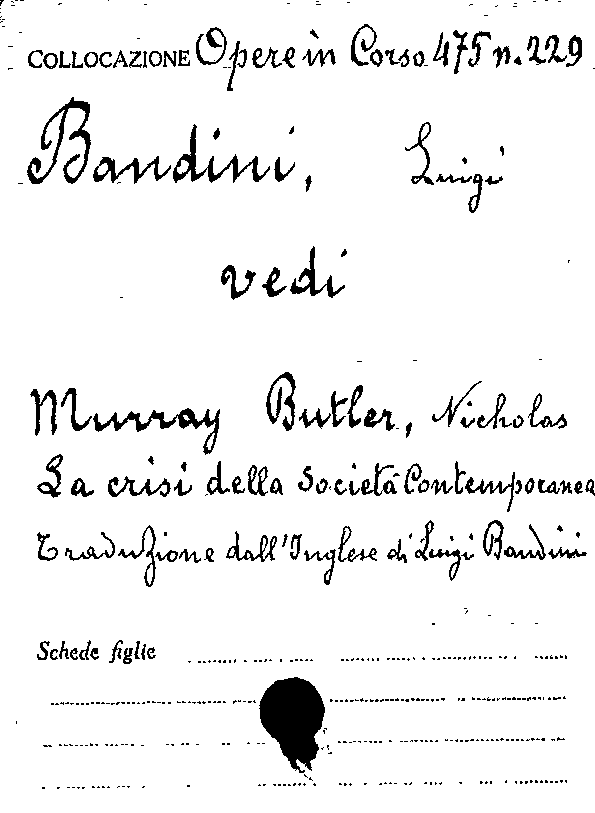 COLLOCAZIONE Opere in Corso 475 n. 229
Bandini, Luigi
vedi
Murray Butler, Nicholas
La crisi della Società Contemporanea
Traduzione dall'Inglese di Luigi Bandini
Schede figlie